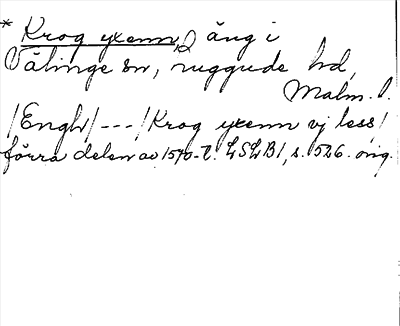 * Krog yxenn, äng i
Välinge sn, ruggude hd,
Malm. l.
/Engh/ --- / Krog yxenn vj less /
förra delen av 1570-t. LSLB1, s. 526. orig.